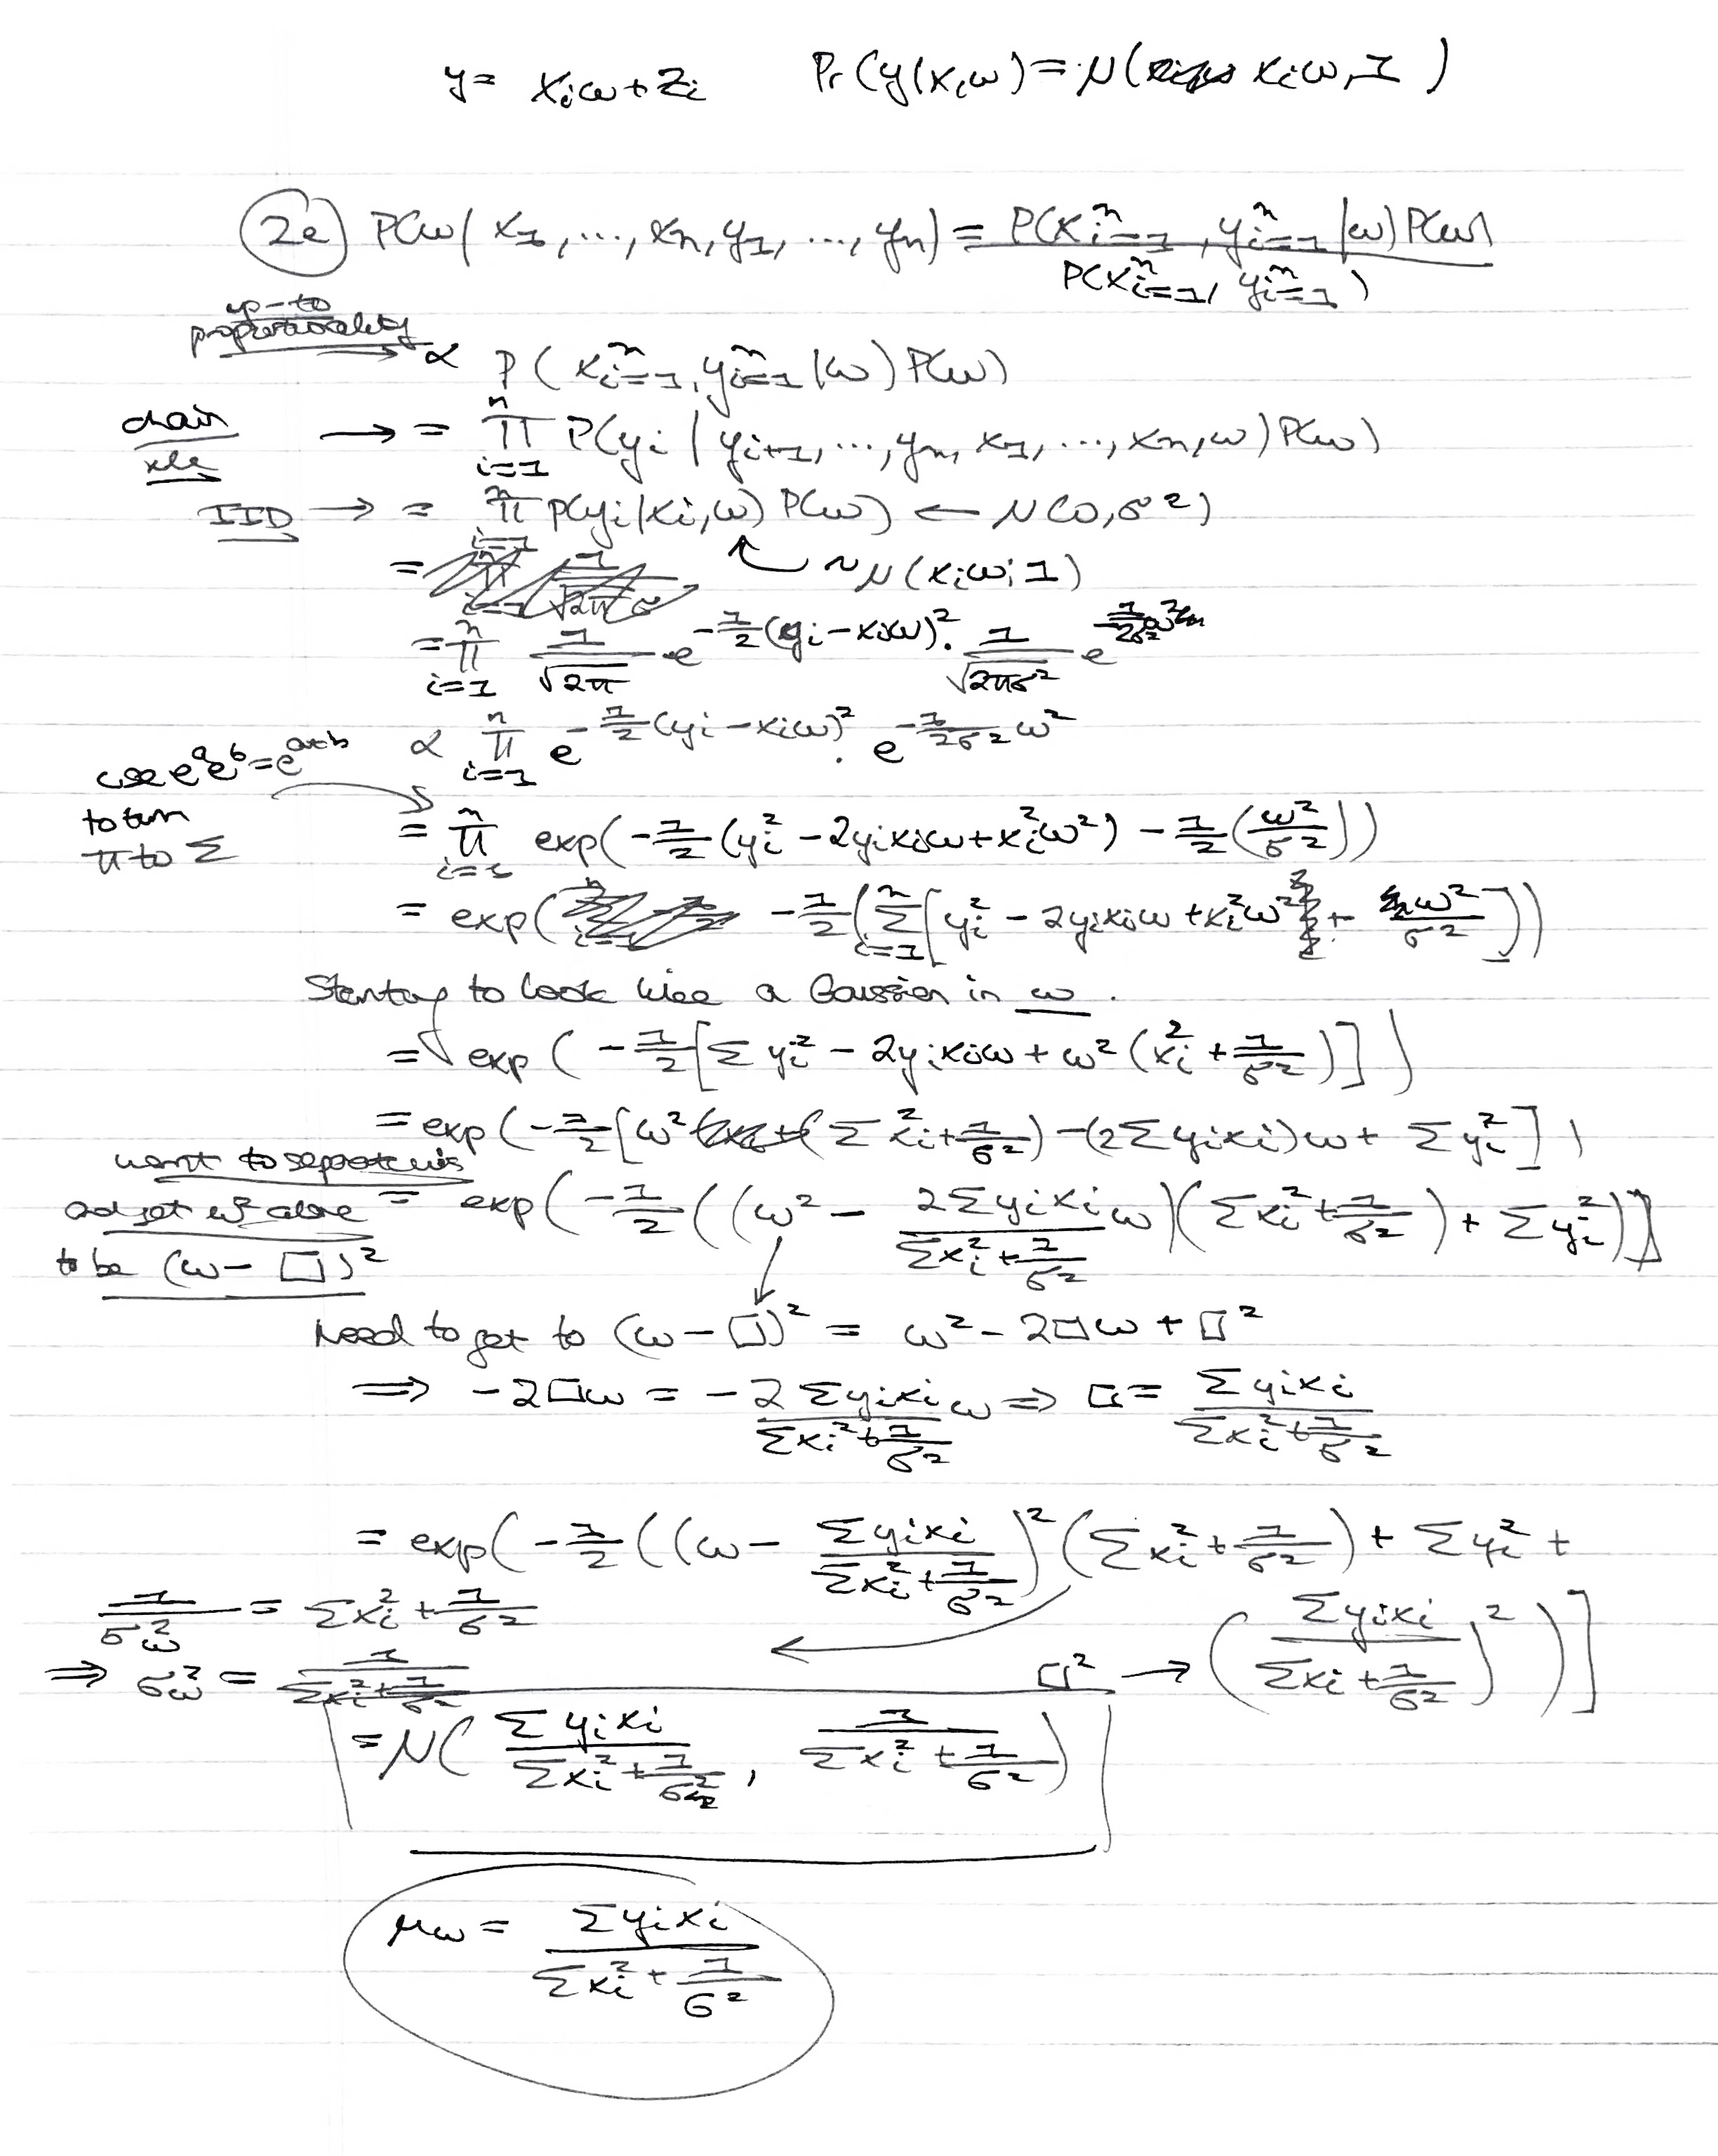 y = xᵢω + zᵢ Pr(y|xᵢω) = N(xᵢω, 1)
2a) P(ω| x₁, ..., xₙ, y₁, ..., yₙ) = P(xⁿᵢ₌₁, yⁿᵢ₌₁|ω)P(ω) / P(xⁿᵢ₌₁, yⁿᵢ₌₁)
up-to
proportionality → ∝ P(xⁿᵢ₌₁, yⁿᵢ₌₁|ω)P(ω)
chain
rule → = ∏ⁿᵢ₌₁ P(yᵢ | yᵢ₊₁, ..., yₙ, x₁, ..., xₙ, ω)P(ω)
IID → = ∏ⁿᵢ₌₁ P(yᵢ|xᵢ, ω) P(ω) ← N(0, σ²)
= ~N(xᵢω; 1)
= ∏ⁿᵢ₌₁ 1/√2π · e^(-1/2(yᵢ-xᵢω)²) · 1/√2πσ² e^(-1/2σ² ω²)
∝ ∏ⁿᵢ₌₁ e^(-1/2(yᵢ-xᵢω)²) · e^(-1/2σ² ω²)
use eᵃeᵇ = eᵃ⁺ᵇ
to turn
π to Σ
= ∏ⁿᵢ₌₁ exp(-1/2(yᵢ² - 2yᵢxᵢω + xᵢ²ω²) - 1/2(ω²/σ²))
= exp( -1/2(Σⁿᵢ₌₁[yᵢ² - 2yᵢxᵢω + xᵢ²ω² + ω²/σ²]))
Starting to look like a Gaussian in ω.
= exp(-1/2[Σ yᵢ² - 2yᵢxᵢω + ω²(xᵢ² + 1/σ²)])
= exp(-1/2[ω²(Σxᵢ² + 1/σ²) - (2Σyᵢxᵢ)ω + Σyᵢ²])
want to separate this
and get ω² alone
to be (ω - □)²
= exp(-1/2((ω² - 2Σyᵢxᵢ/(Σxᵢ² + 1/σ²) ω)(Σxᵢ² + 1/σ²) + Σyᵢ²)]
Need to get to (ω - □)² = ω² - 2□ω + □²
⟹ -2□ω = -2Σyᵢxᵢ/(Σxᵢ² + 1/σ²) ω ⟹ □ = Σyᵢxᵢ/(Σxᵢ² + 1/σ²)
= exp(-1/2((ω - Σyᵢxᵢ/(Σxᵢ² + 1/σ²))²(Σxᵢ² + 1/σ²) + Σyᵢ² +
□² → (Σyᵢxᵢ/(Σxᵢ + 1/σ²))²)]
1/σ²_ω = Σxᵢ² + 1/σ²
⟹ σ²_ω = 1/(Σxᵢ² + 1/σ²)
= N(Σyᵢxᵢ/(Σxᵢ² + 1/σ²), 1/(Σxᵢ² + 1/σ²))
μ_ω = Σyᵢxᵢ/(Σxᵢ² + 1/σ²)